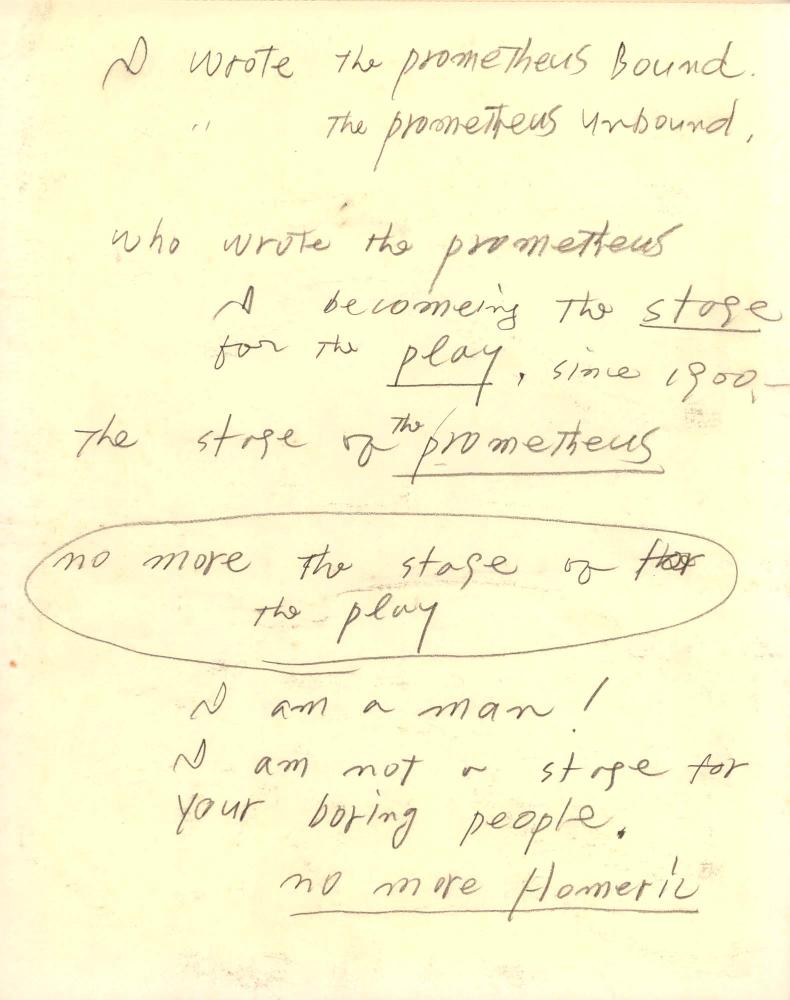 I wrote the prometheus Bound.
" the prometheus Unbound,
who wrote the prometheus
I becomeing the stage
for the play, since 1900,-
The stage of the prometheus
no more the stage of for
the play
I am a man!
I am not a stage for
your boring people.
no more Homeric